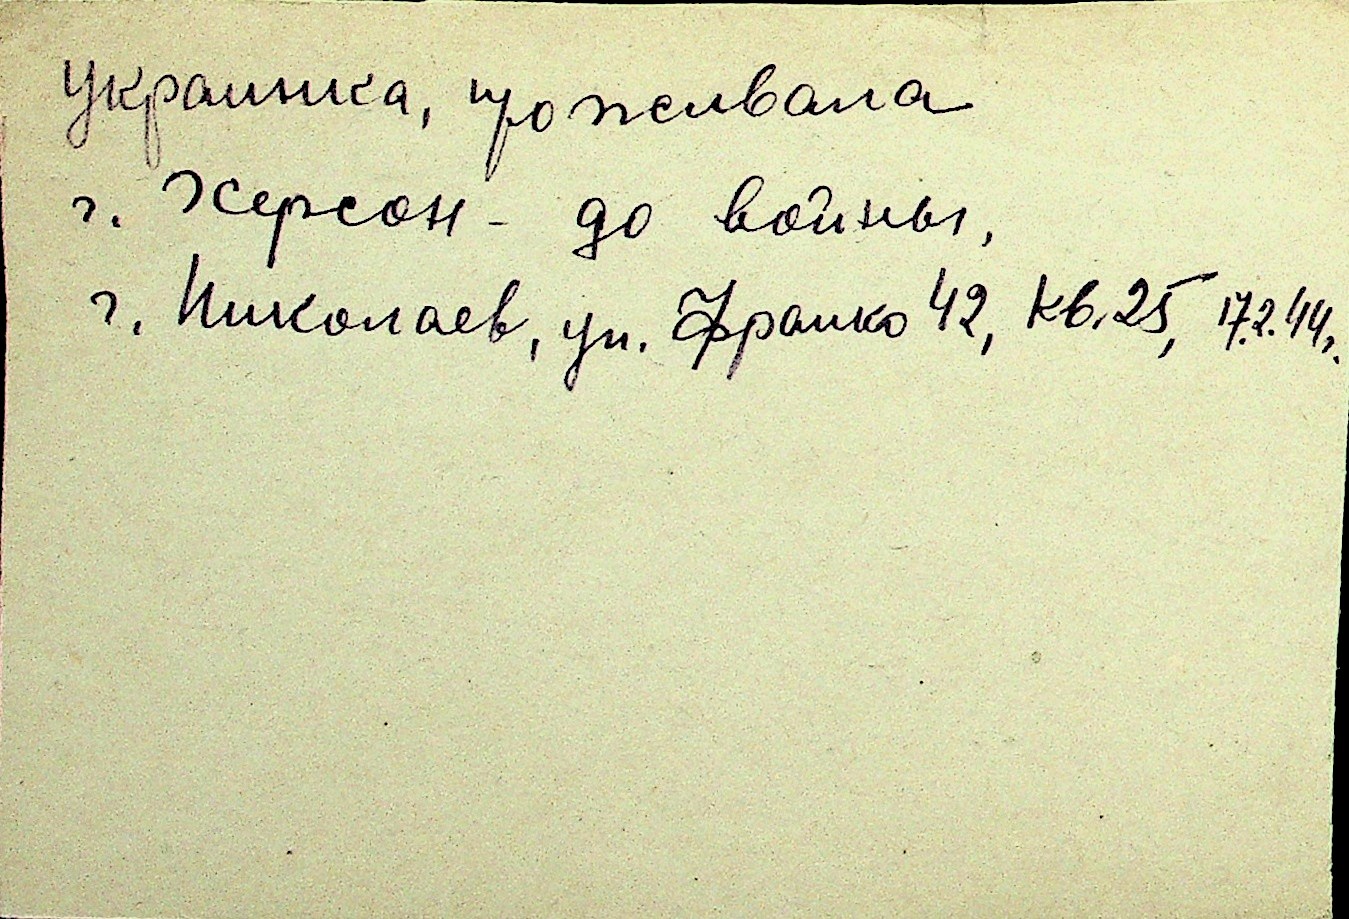 украинка, проживала
г. Херсон - до войны,
г. Николаев, ул. Франко 42, кв. 25, 17.2.44г.